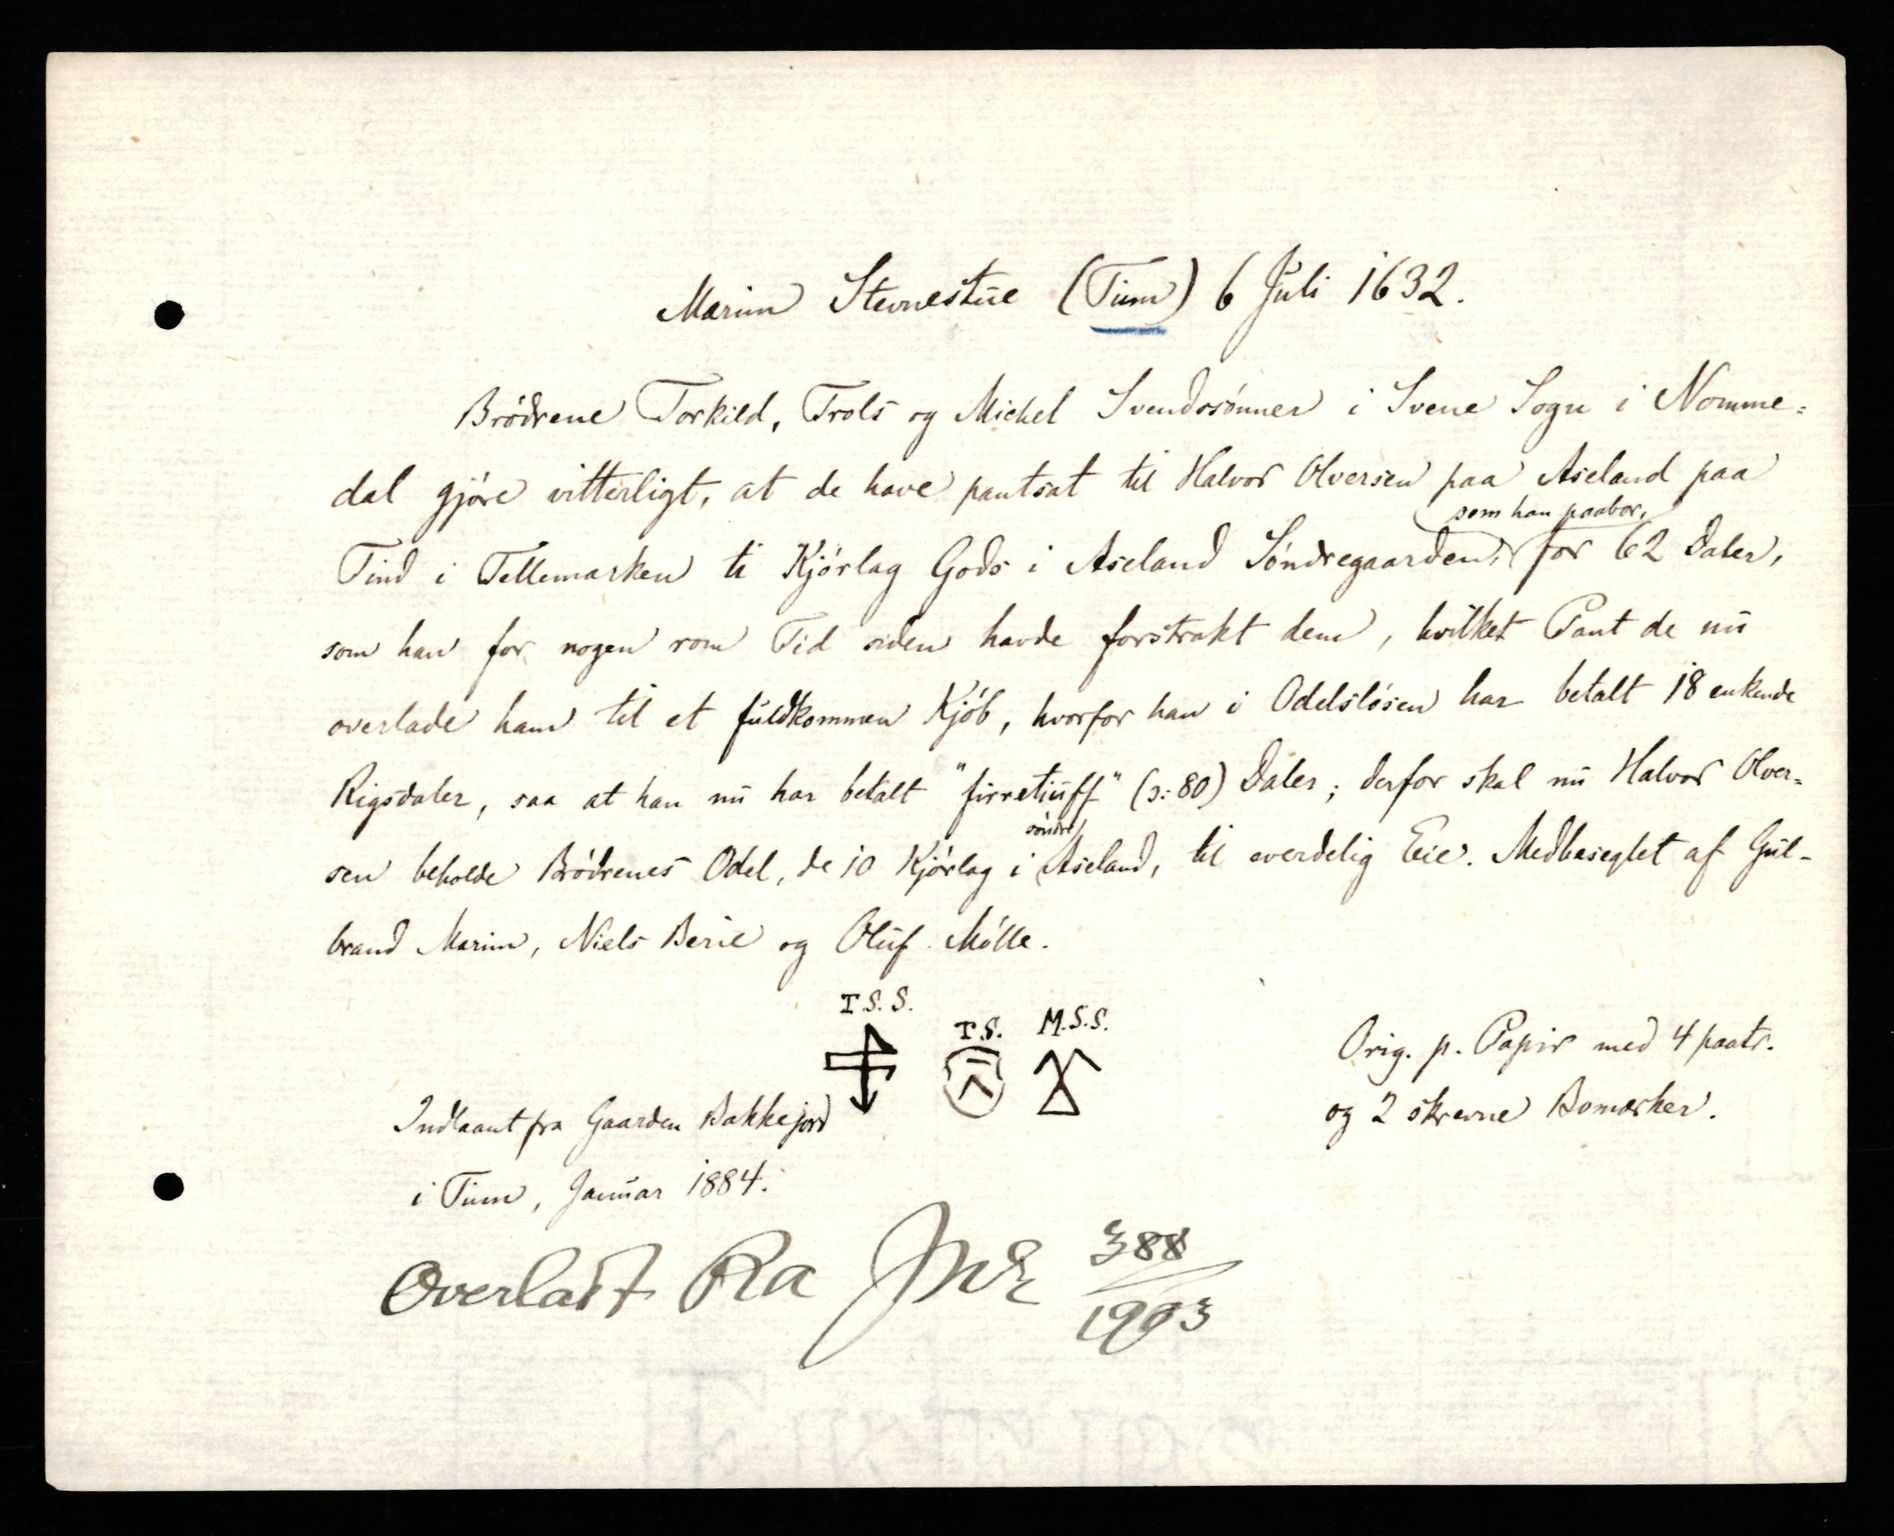 Marim Stevnestue (Tinn) 6 Juli 1632.
Brødrene Torkild, Trols og Michel Svendssønner i Svene Sogn i Nomme-
dal gjøre vitterligt, at de have pantsat til Halvor Olversen paa Aseland paa
som han paabor,
Tind i Tellemarken ti Kjørlag Gods i Aseland Søndregaarden, for 62 Daler,
som han for nogen rom Tid siden havde forstrakt dem, hvilket Pant de nu
overlade ham til et fuldkommen Kjøb, hvorfor han i Odelsløsen har betalt 18 enkende
Rigsdaler, saa at han nu har betalt "firretiuff" (ɔ: 80) Daler; derfor skal nu Halvor Olver-
søndre
sen beholde Brødrenes Odel, de 10 Kjørlag i Aseland, til everdelig Eie. Medbeseglet af Gul-
brand Marim, Niels Berie og Oluf Mølle.
T S. S.
T.S.
M.S.S.
Orig. p. Papir med 4 paatr.
og 2 skrevne Bomærker.
Indlaant fra Gaarden Bakkejord
i Tinn, Januar 1884.
Overladt Ra Jnk 388
1903